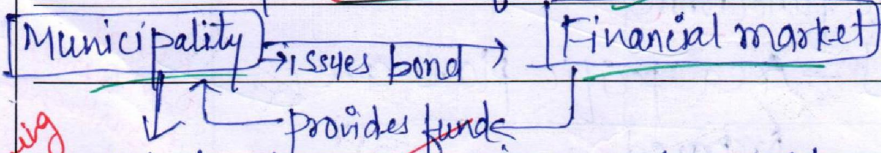 Municipality → issues bond → Financial market
provides funds